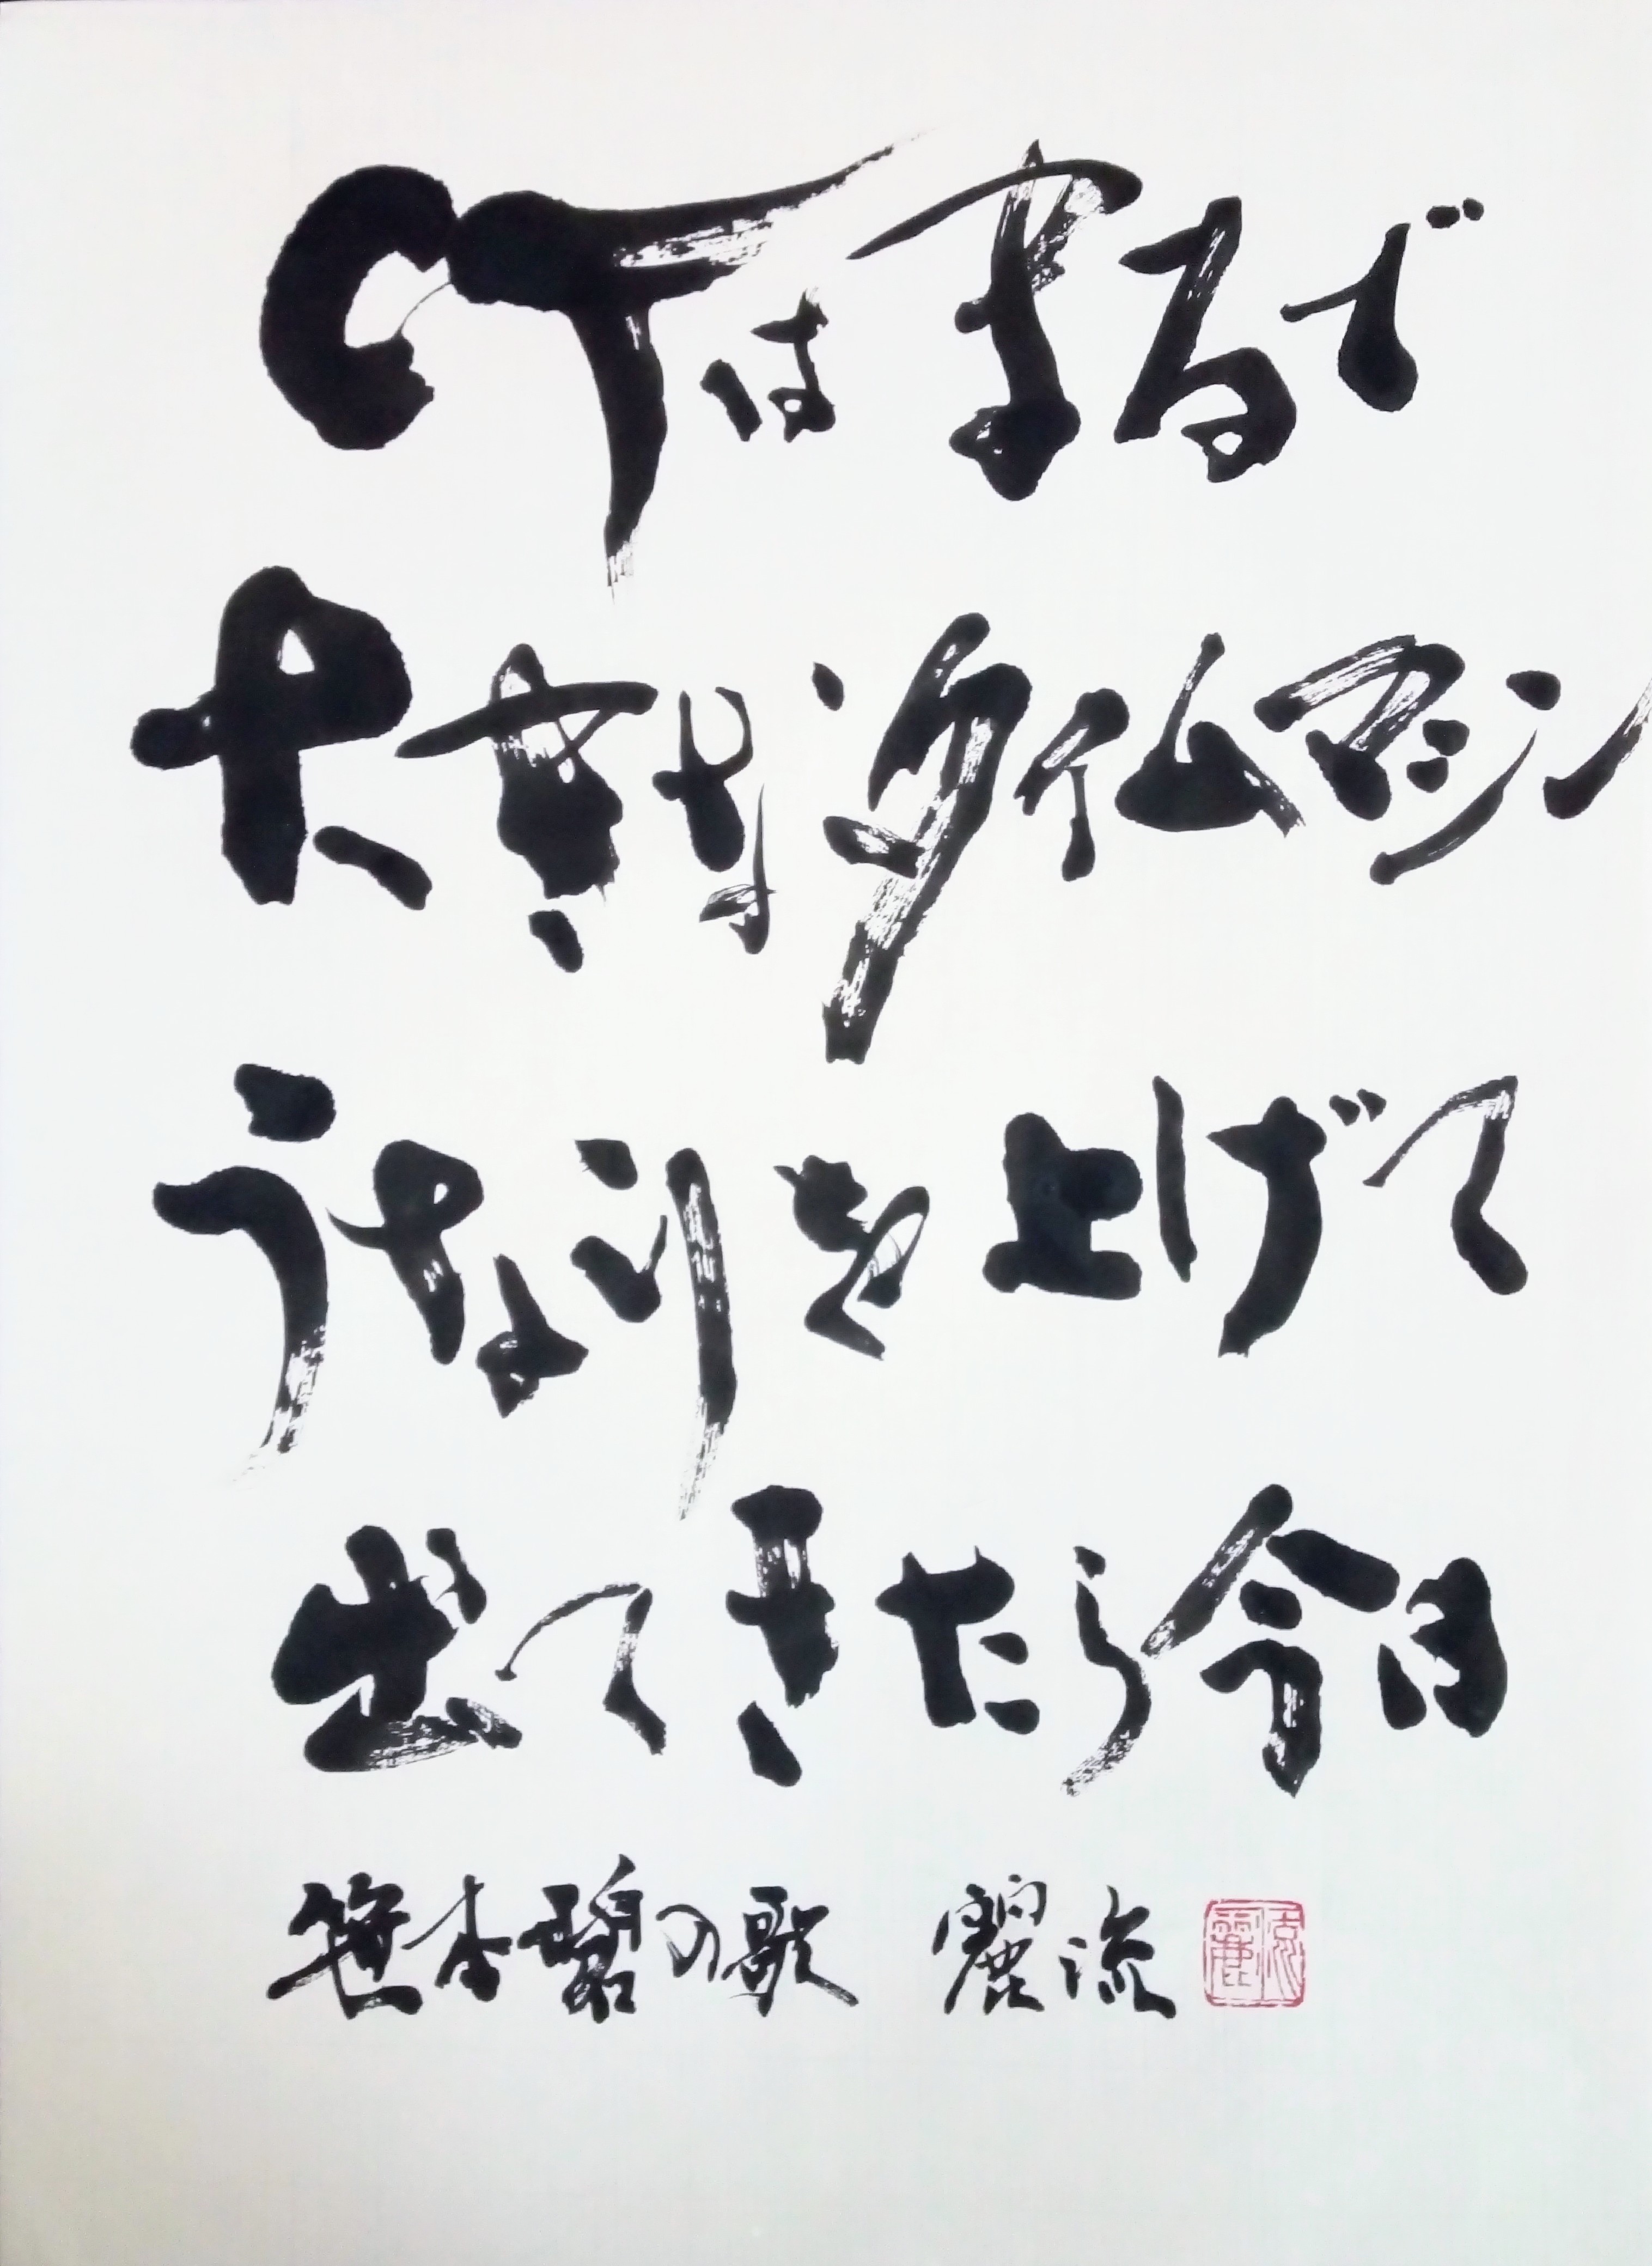 CTはまるで
大きなタイムマシン
うなりを上げて
出てきたら今日
笹本碧の歌 麗流